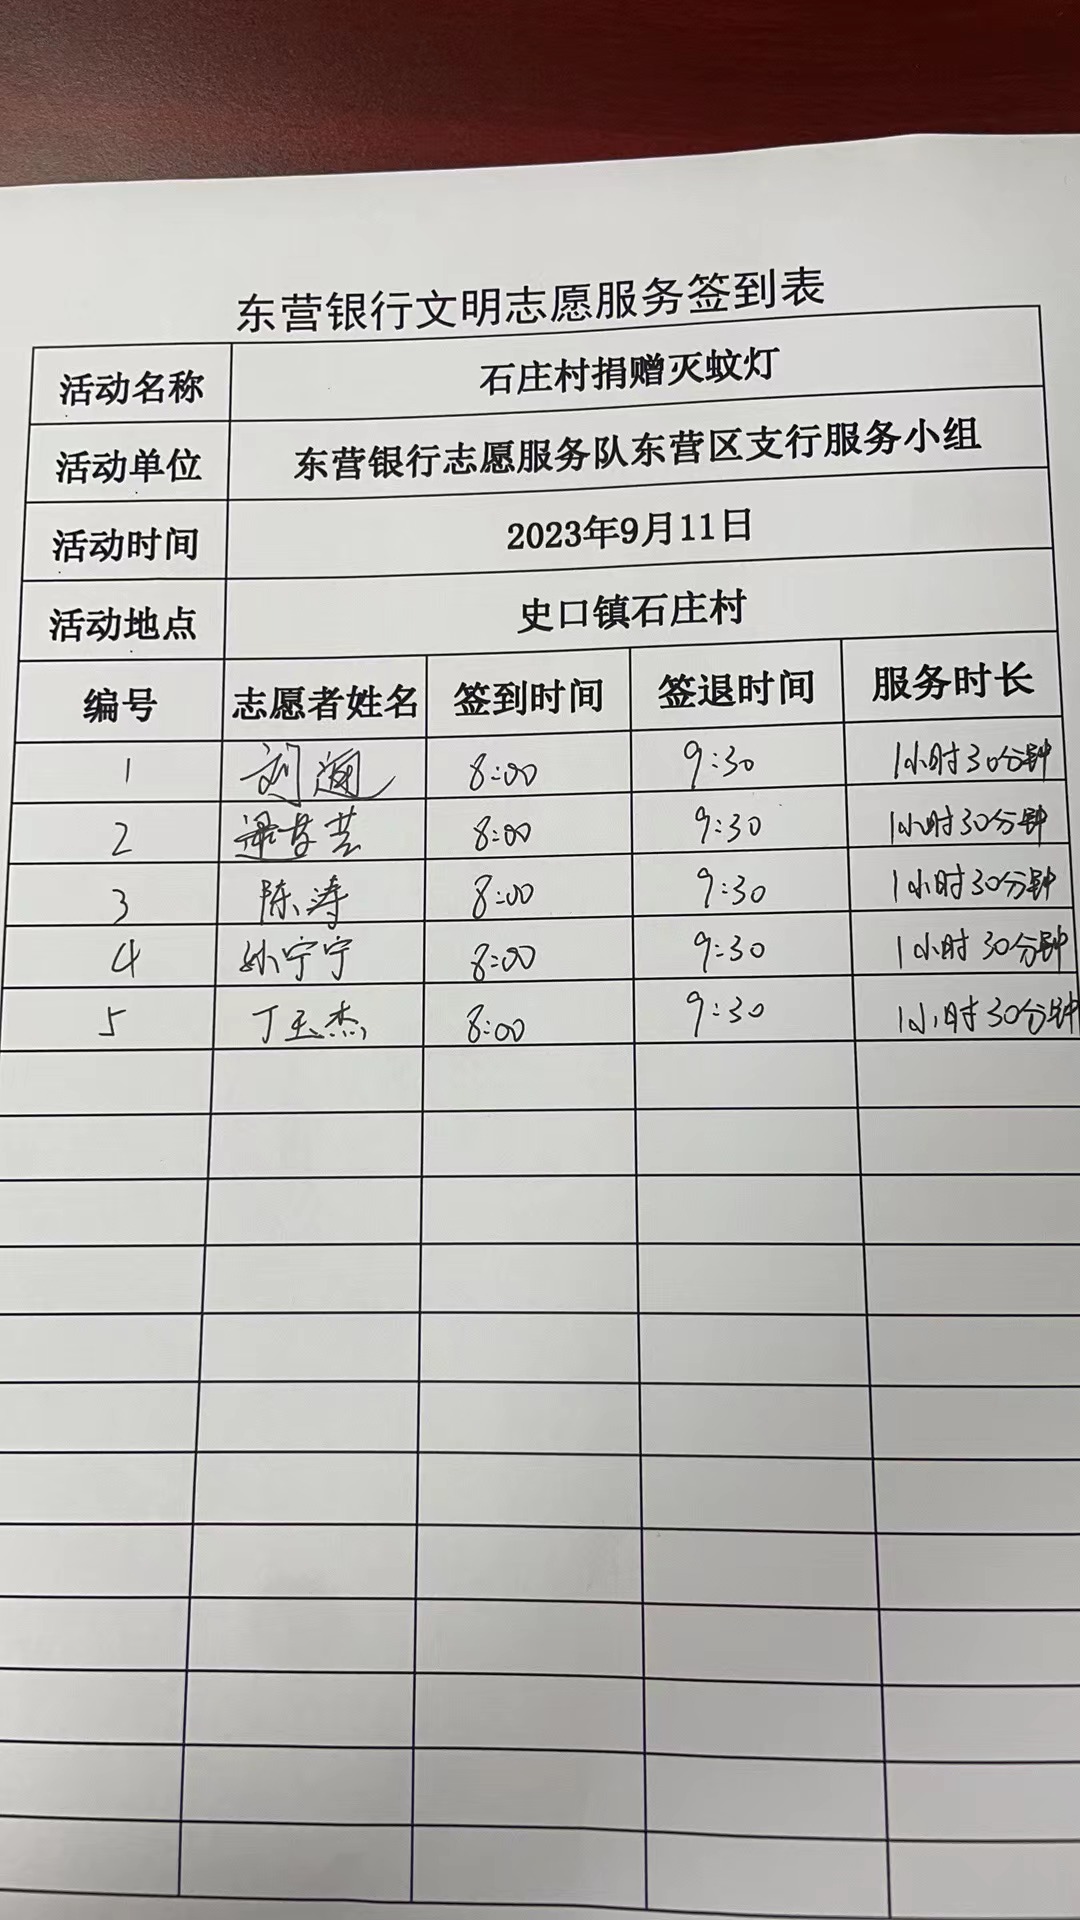 东营银行文明志愿服务签到表
活动名称 石庄村捐赠灭蚊灯
活动单位 东营银行志愿服务队东营区支行服务小组
活动时间 2023年9月11日
活动地点 史口镇石庄村
编号 志愿者姓名 签到时间 签退时间 服务时长
1 刘 8:00 9:30 1小时30分钟
2 8:00 9:30 1小时30分钟
3 陈涛 8:00 9:30 1小时30分钟
4 孙宁宁 8:00 9:30 1小时30分钟
5 丁玉杰 8:00 9:30 1小时30分钟